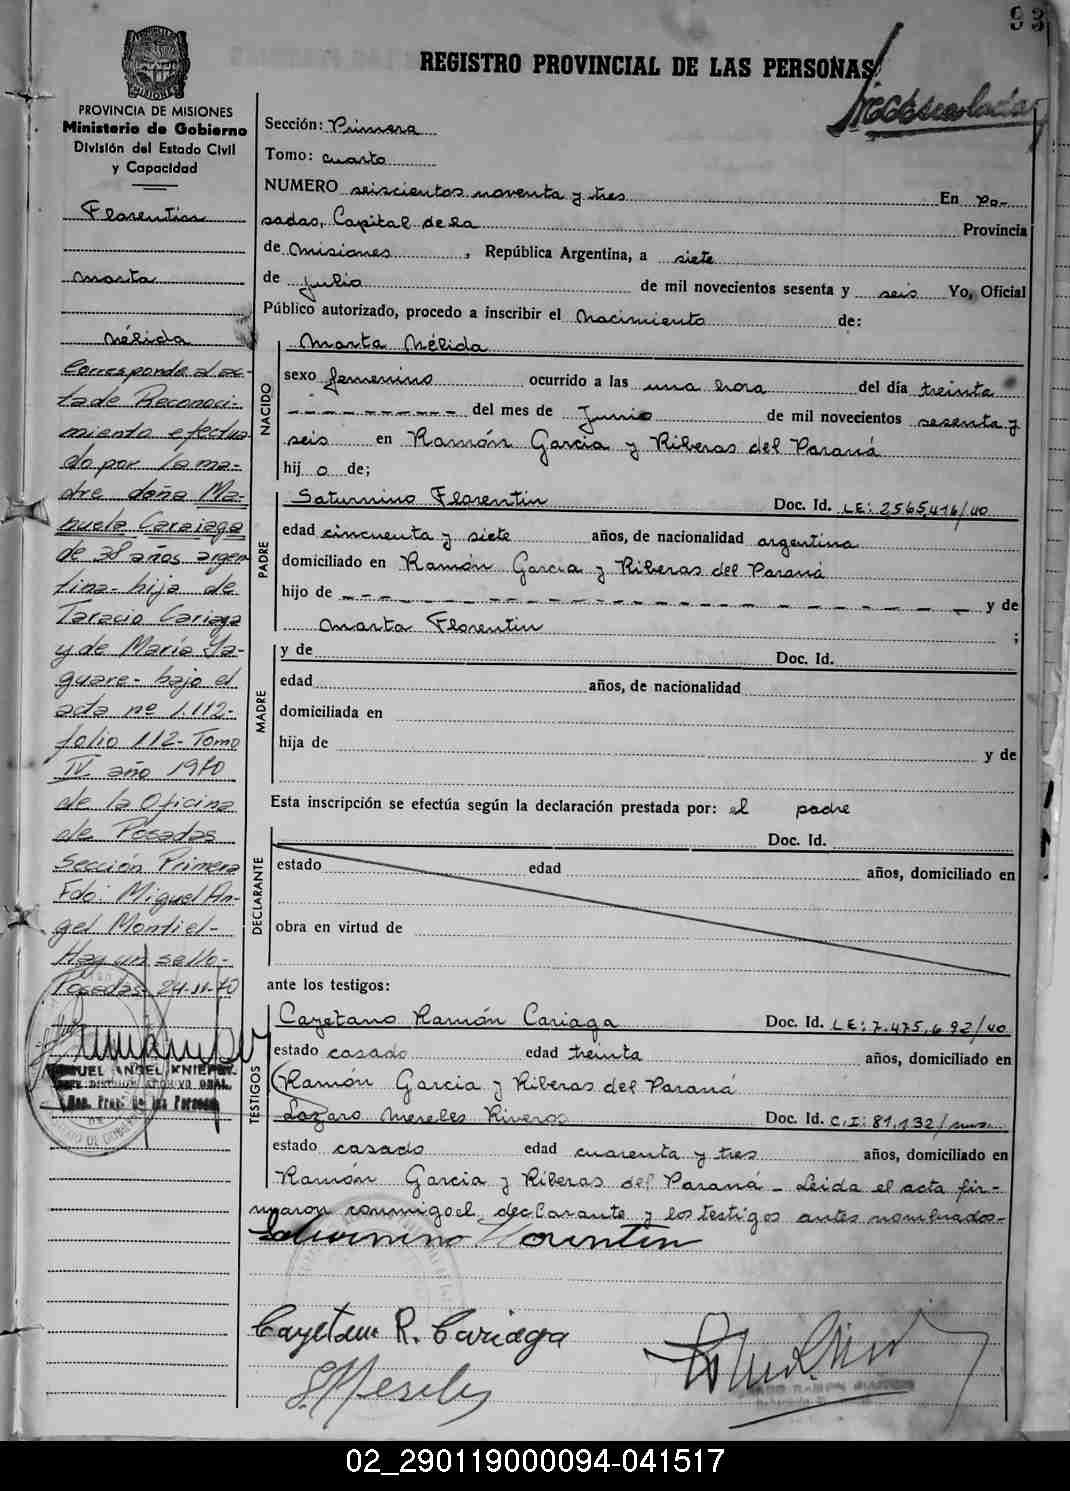 93
REGISTRO PROVINCIAL DE LAS PERSONAS
PROVINCIA DE MISIONES
Ministerio de Gobierno
División del Estado Civil
y Capacidad
Florentin
Marta
Nélida
Corresponde al ac-
ta de Reconoci-
miento efectua
do por la ma-
dre doña Ma-
nuela Cariaga
de 38 años argen
tina- hija de
Taracio Cariaga
y de María Ya-
guare- bajo el
acta nº 1.112-
folio 112- Tomo
IV año 1970
de la Oficina
de Posadas
Sección Primera
Fdo: Miguel An-
gel Montiel-
Hay un sello-
Posadas 24-11-70
Sección: Primera
Tomo: cuarto
NUMERO seiscientos noventa y tres En Po-
sadas, Capital de la Provincia
de Misiones, República Argentina, a siete
de Julio de mil novecientos sesenta y seis Yo, Oficial
Público autorizado, procedo a inscribir el Nacimiento de:
NACIDO
Marta Nélida
sexo femenino ocurrido a las una hora del día treinta
--------- del mes de Junio de mil novecientos sesenta y
seis en Ramón García y Riberas del Paraná
hij o de;
PADRE
Saturnino Florentin Doc. Id. LE: 2565,416/40
edad cincuenta y siete años, de nacionalidad argentina
domiciliado en Ramón García y Riberas del Paraná
hijo de ------------------ y de
Marta Florentin ;
MADRE
y de Doc. Id.
edad años, de nacionalidad
domiciliada en
hija de y de
Esta inscripción se efectúa según la declaración prestada por: el padre
DECLARANTE
Doc. Id.
estado edad años, domiciliado en
obra en virtud de
ante los testigos:
TESTIGOS
Cayetano Ramón Cariaga Doc. Id. LE: 7.475,692/40
estado casado edad treinta años, domiciliado en
Ramón García y Riberas del Paraná
Lázaro Mereles Riveros Doc. Id. C.I: 81,132/
estado casado edad cuarenta y tres años, domiciliado en
Ramón García y Riberas del Paraná - Leida el acta fir-
maron conmigo el declarante y los testigos antes nombrados-
Saturnino Florentin
Cayetano R. Cariaga
L. Mereles
02_290119000094-041517